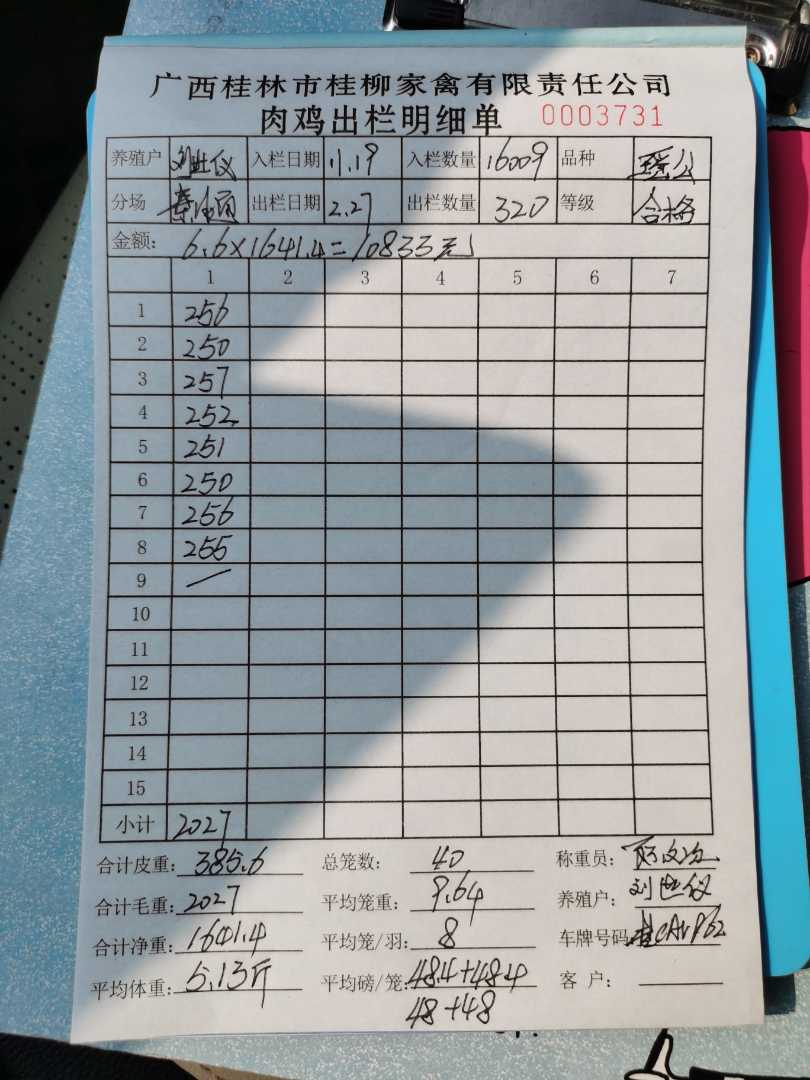 广西桂林市桂柳家禽有限责任公司
肉鸡出栏明细单 0003731
养殖户 刘世仪 入栏日期 11.19 入栏数量 16009 品种 瑶公
分场 出栏日期 2.27 出栏数量 320 等级 合格
金额: 6.6×1641.4=10833元
1 2 3 4 5 6 7
1 256
2 250
3 257
4 252
5 251
6 250
7 256
8 255
9 /
10
11
12
13
14
15
小计 2027
合计皮重: 385.6 总笼数: 40 称重员:
合计毛重: 2027 平均笼重: 9.64 养殖户: 刘世仪
合计净重: 1641.4 平均笼/羽: 8 车牌号码
平均体重: 5.13斤 平均磅/笼: 48.4+48.4 客 户:
48+48